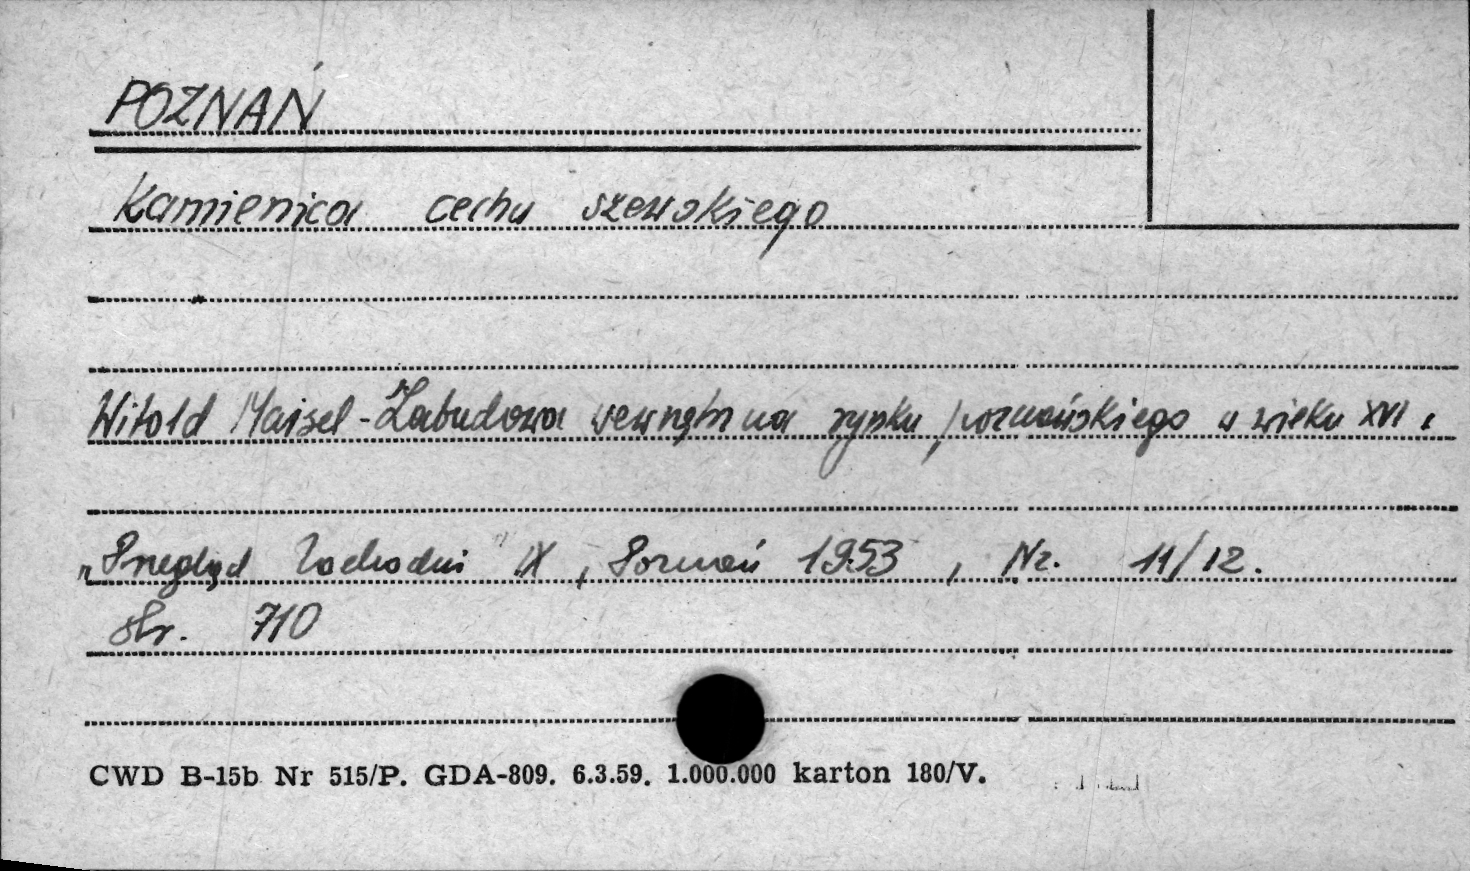 POZNAŃ
Kamienica cechu szewskiego
Witold Maisel - Zabudowa wewnętrzna rynku poznańskiego w wieku XVI.
"Przegląd Zachodni" IX, Poznań 1953, Nr. 11/12.
str. 710
CWD B-15b Nr 515/P. GDA-809. 6.3.59. 1.000.000 karton 180/V.